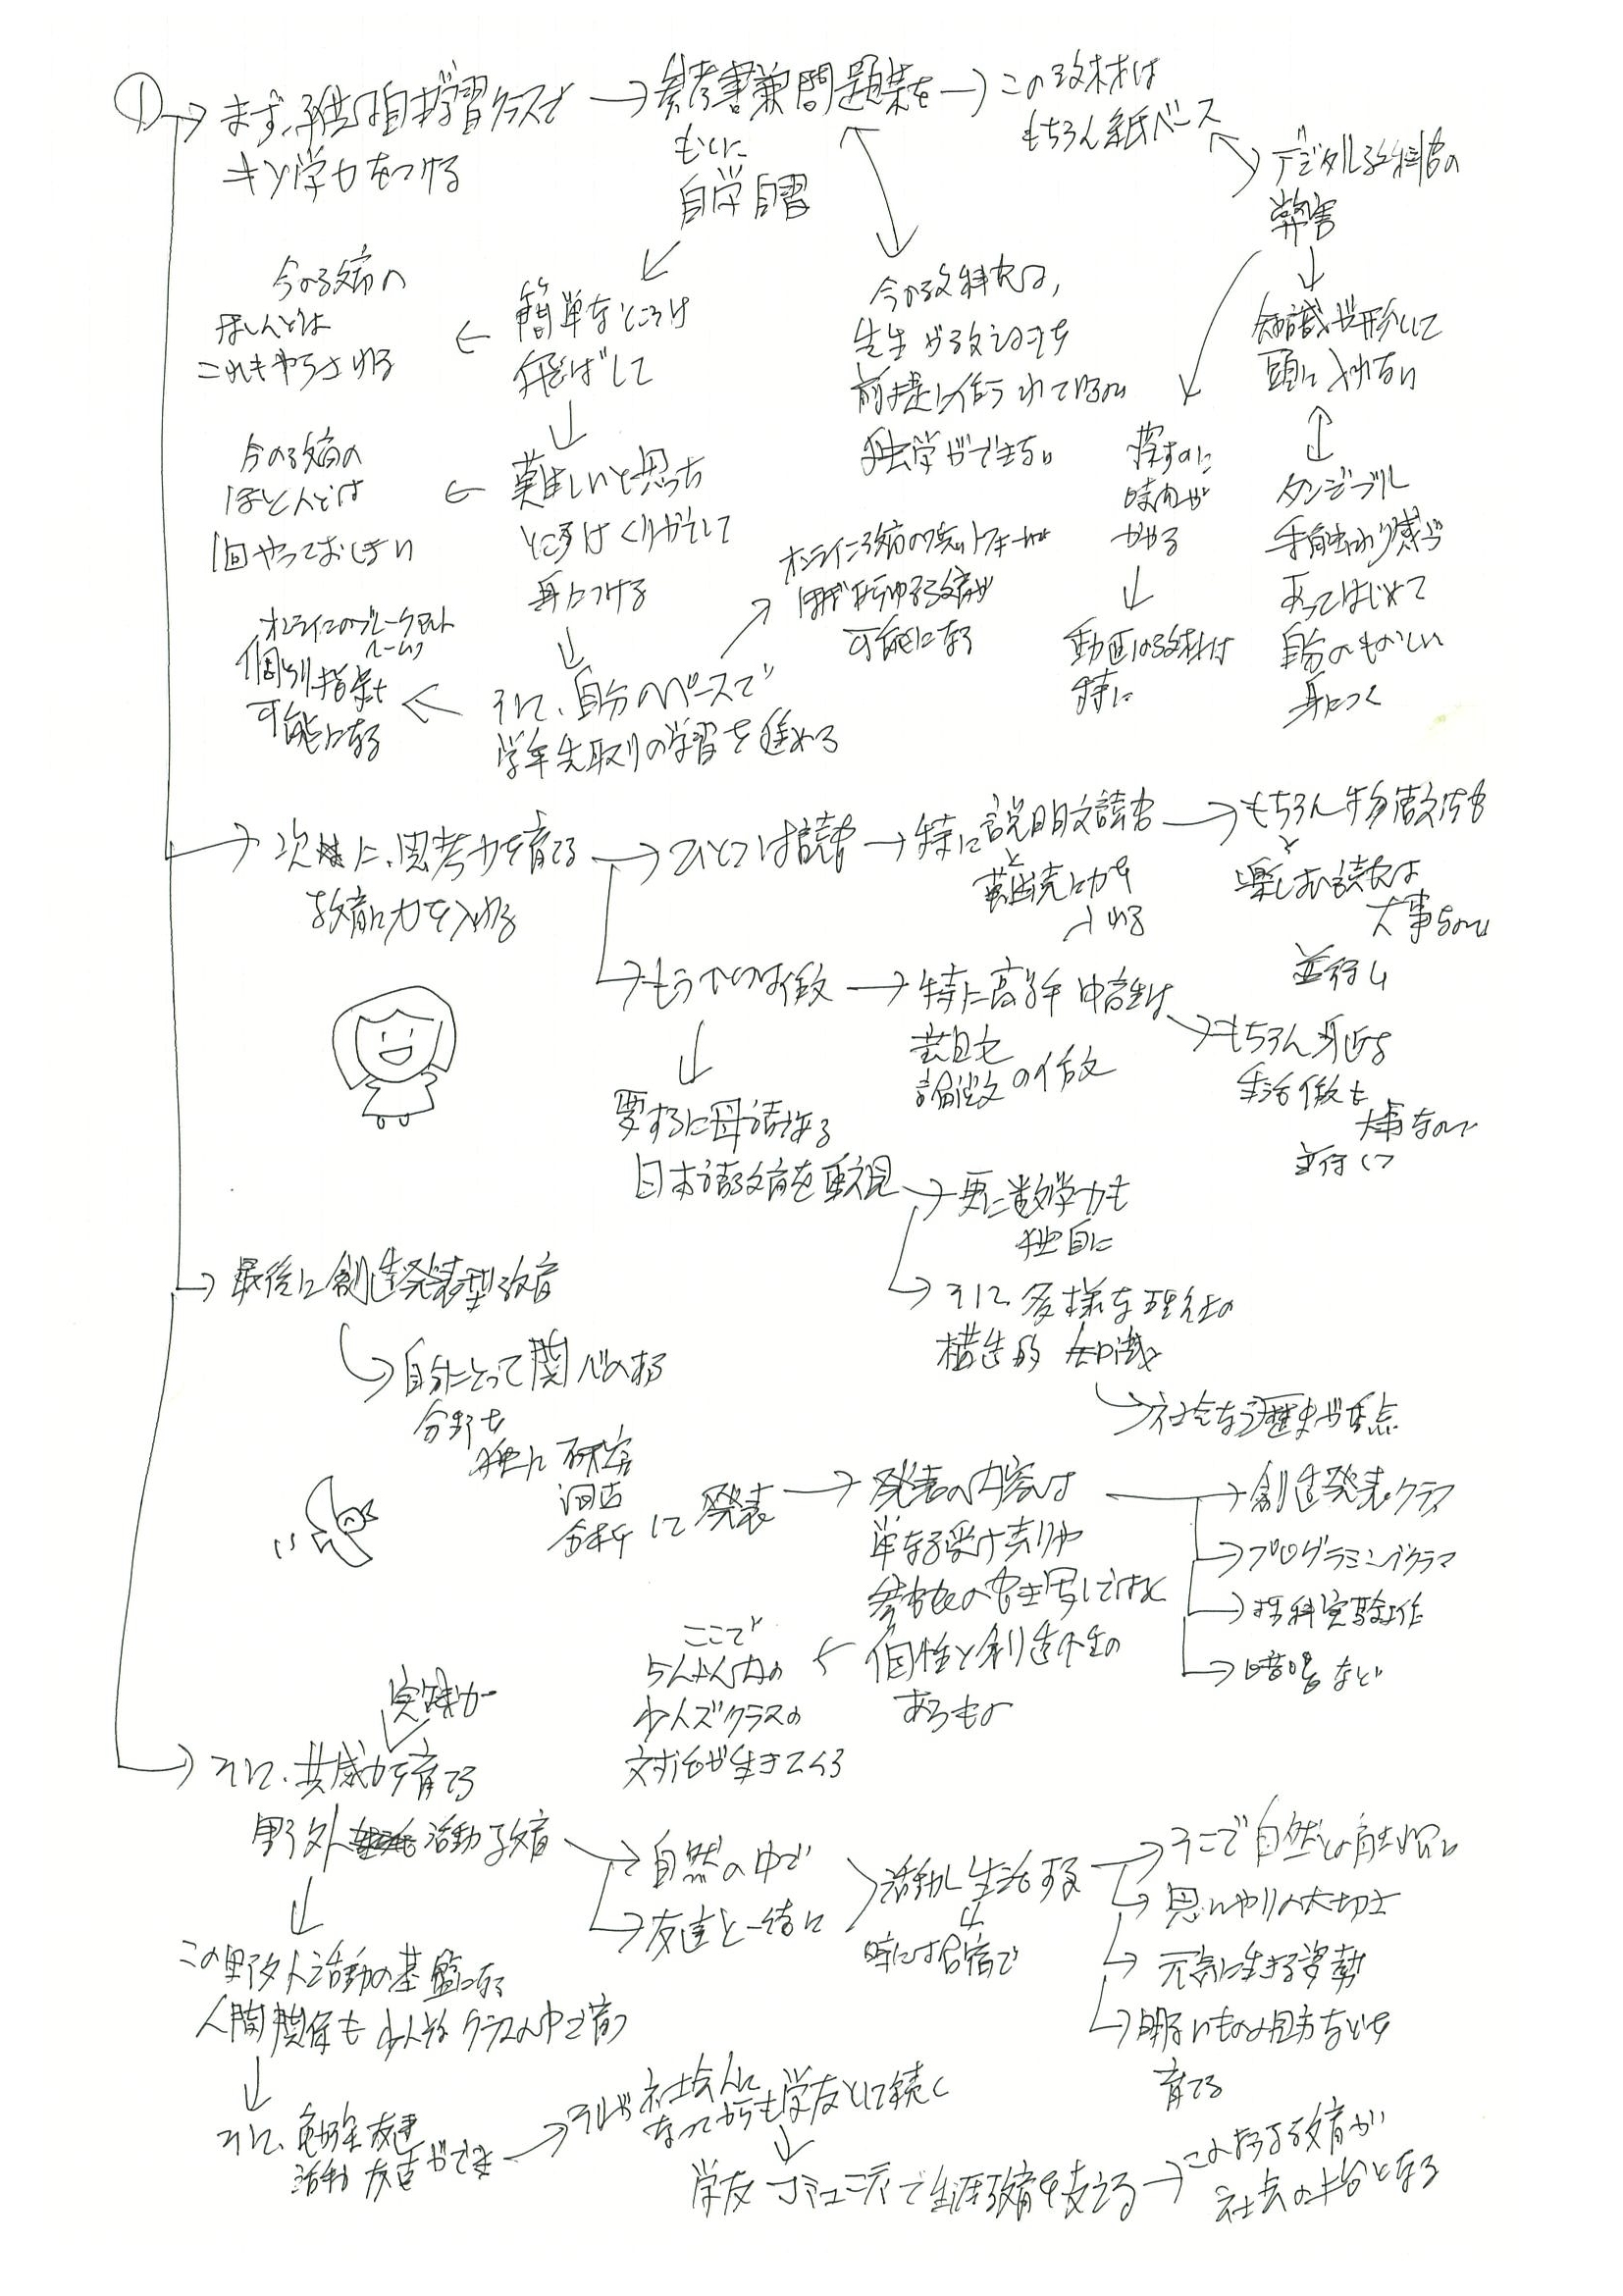 ①→ まず、自学習クラスで
キソ学力をつける
→ 参考書兼問題集を
もとに
自学自習
→ この教材は
もちろん紙ベース
デジタル教科書の
弊害
今の教育の
ほとんどは
これをやらされる
← 簡単なところは
飛ばして
今の教科書は、
先生が教えることを
前提に作られているので
独学ができない
知識が形として
頭に入れない
今の教育の
ほとんどは
1回やっておしまい
← 難しいと思った
ところはくりかえして
身につける
探すのに
時間が
かかる
動画の教材は
特に
タンジブル
手触り感が
あってはじめて
自分のものとして
身につく
オンライン教育のプラットフォームが
ほぼあらゆる教育が
可能になる
オンラインのブレークアウト
ルームで
個別指導も
可能になる
← そして、自分のペースで
学年先取りの学習を進める
→ 次に、思考力を育てる
教育に力を入れる
→ ひとつは読書
→ 特に説明文読書
と
難読に力を
入れる
→ もちろん物語文読書
と
楽しむ読書は
大事なので
並行し
→ もうひとつは作文
→ 特に高学年 中高生は
論説文の作文
→ もちろん身近な
生活作文も
大事なので
並行して
要するに母語である
日本語教育を重視
→ 更に数学力も
独自に
→ そして、多様な理社の
構造的知識
→ 社会なら歴史が重点
→ 最後に創造発表型教育
自分にとって関心のある
分野を
独自に 研究
調査
分析して発表
→ 発表の内容は
単なる受け売りや
参考書の書き写しではなく
個性と創造性の
あるもの
→ 創造発表クラス
→ プログラミングクラス
→ 理科実験工作
→ 暗唱など
← ここで
5人以内の
少人数クラスの
対話が生きてくる
実践力
→ そして、共感力を育てる
野外活動教育
→ 自然の中で
→ 友達と一緒に
活動し生活する
時には合宿で
→ そこで自然との触れ合い
→ 思いやりの大切さ
→ 元気に生きる姿勢
→ 明るいものの見方などを
育てる
この野外活動の基盤になる
人間関係も少人数クラスの中で育つ
そして、勉強友達
活動友達ができ
→ それが社会人に
なってからも学友として続く
学友コミュニティで生涯教育を支える
→ このような教育が
社会の土台となる